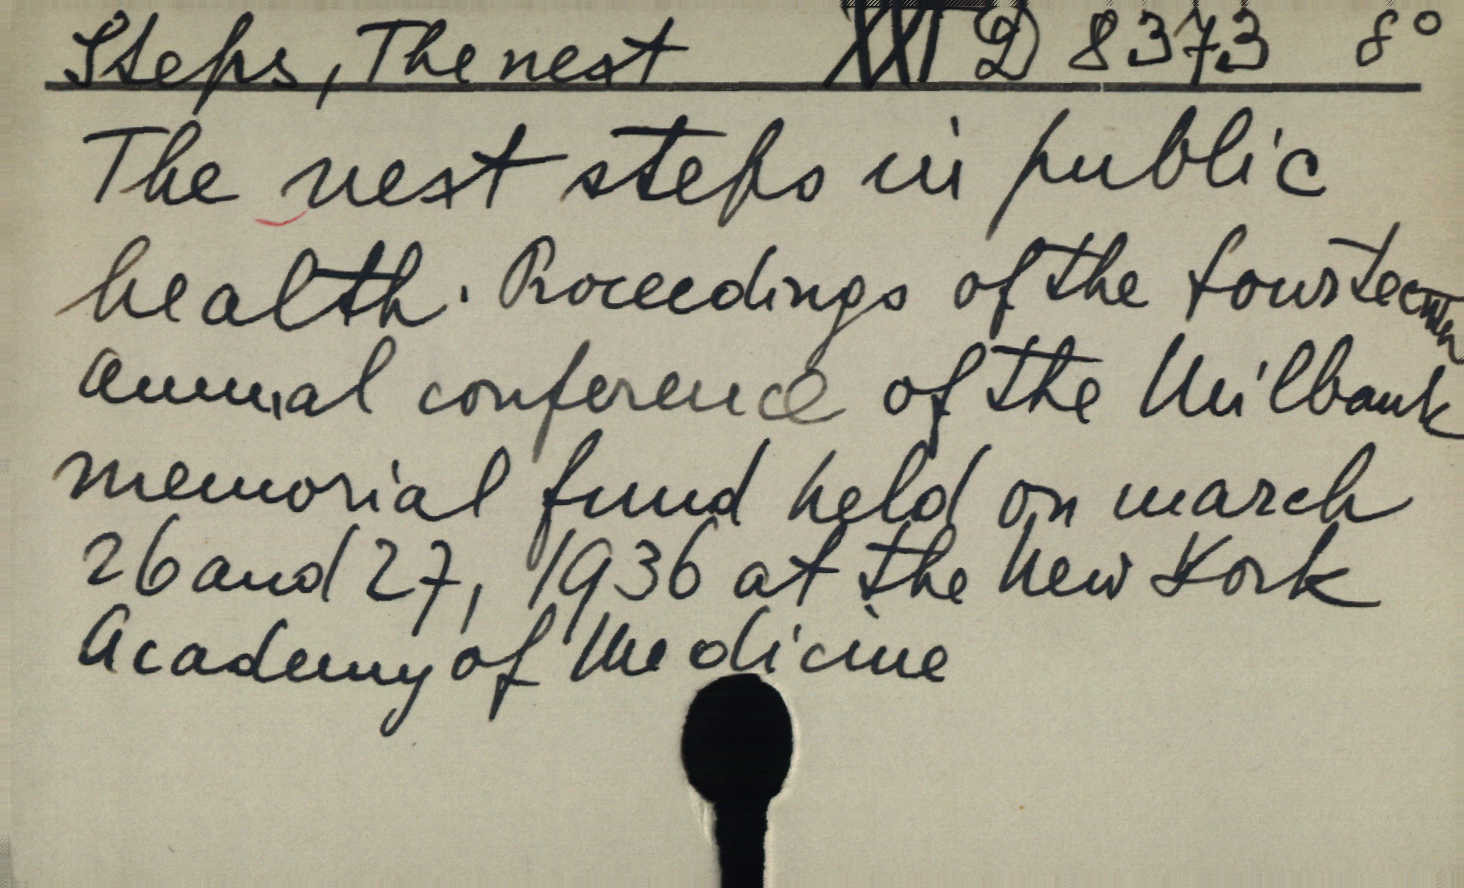 Steps, The next XXI D 8373 8°
The next steps in public
health. Proceedings of the fourteenth
annual conference of the Milbank
memorial fund held on march
26 and 27, 1936 at the New York
Academy of Medicine